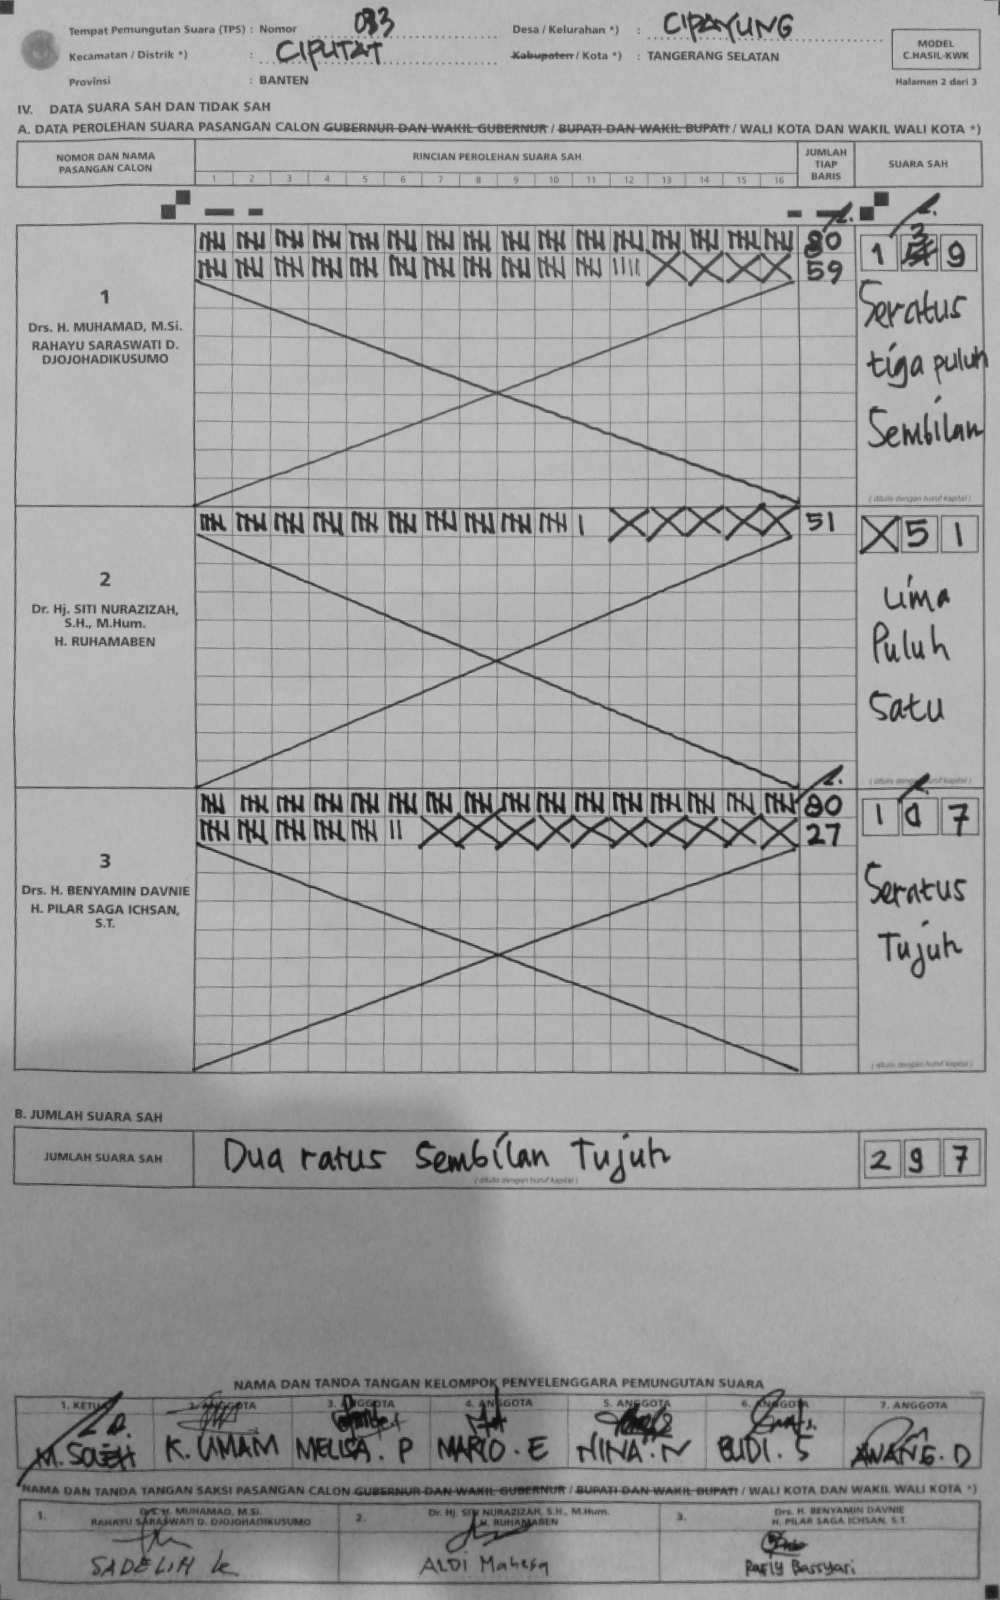 Tempat Pemungutan Suara (TPS) : Nomor 033 Desa / Kelurahan *) : CIPAYUNG
Kecamatan / Distrik *) : CIPUTAT Kabupaten / Kota *) : TANGERANG SELATAN
Provinsi : BANTEN
MODEL
C.HASIL-KWK
Halaman 2 dari 3
IV. DATA SUARA SAH DAN TIDAK SAH
A. DATA PEROLEHAN SUARA PASANGAN CALON GUBERNUR DAN WAKIL GUBERNUR / BUPATI DAN WAKIL BUPATI / WALI KOTA DAN WAKIL WALI KOTA *)
NOMOR DAN NAMA
PASANGAN CALON
RINCIAN PEROLEHAN SUARA SAH
1 2 3 4 5 6 7 8 9 10 11 12 13 14 15 16
JUMLAH
TIAP
BARIS
SUARA SAH
1
Drs. H. MUHAMAD, M.Si.
RAHAYU SARASWATI D.
DJOJOHADIKUSUMO
80
59
1 3 9
Seratus
tiga puluh
Sembilan
( ditulis dengan huruf kapital )
2
Dr. Hj. SITI NURAZIZAH,
S.H., M.Hum.
H. RUHAMABEN
51
X 5 1
Lima
Puluh
Satu
( ditulis dengan huruf kapital )
3
Drs. H. BENYAMIN DAVNIE
H. PILAR SAGA ICHSAN,
S.T.
80
27
1 0 7
Seratus
Tujuh
( ditulis dengan huruf kapital )
B. JUMLAH SUARA SAH
JUMLAH SUARA SAH Dua ratus Sembilan Tujuh 2 9 7
( ditulis dengan huruf kapital )
NAMA DAN TANDA TANGAN KELOMPOK PENYELENGGARA PEMUNGUTAN SUARA
1. KETUA 2. ANGGOTA 3. ANGGOTA 4. ANGGOTA 5. ANGGOTA 6. ANGGOTA 7. ANGGOTA
M. SOLEH K. UMAM MELISA . P MARIO . E NINA . N BUDI . S AWANG . D
NAMA DAN TANDA TANGAN SAKSI PASANGAN CALON GUBERNUR DAN WAKIL GUBERNUR / BUPATI DAN WAKIL BUPATI / WALI KOTA DAN WAKIL WALI KOTA *)
1. Drs. H. MUHAMAD, M.Si.
RAHAYU SARASWATI D. DJOJOHADIKUSUMO
SADELIH
2. Dr. Hj. SITI NURAZIZAH, S.H., M.Hum.
H. RUHAMABEN
ALDI Mahesa
3. Drs. H. BENYAMIN DAVNIE
H. PILAR SAGA ICHSAN, S.T.
Rafly Bassyari